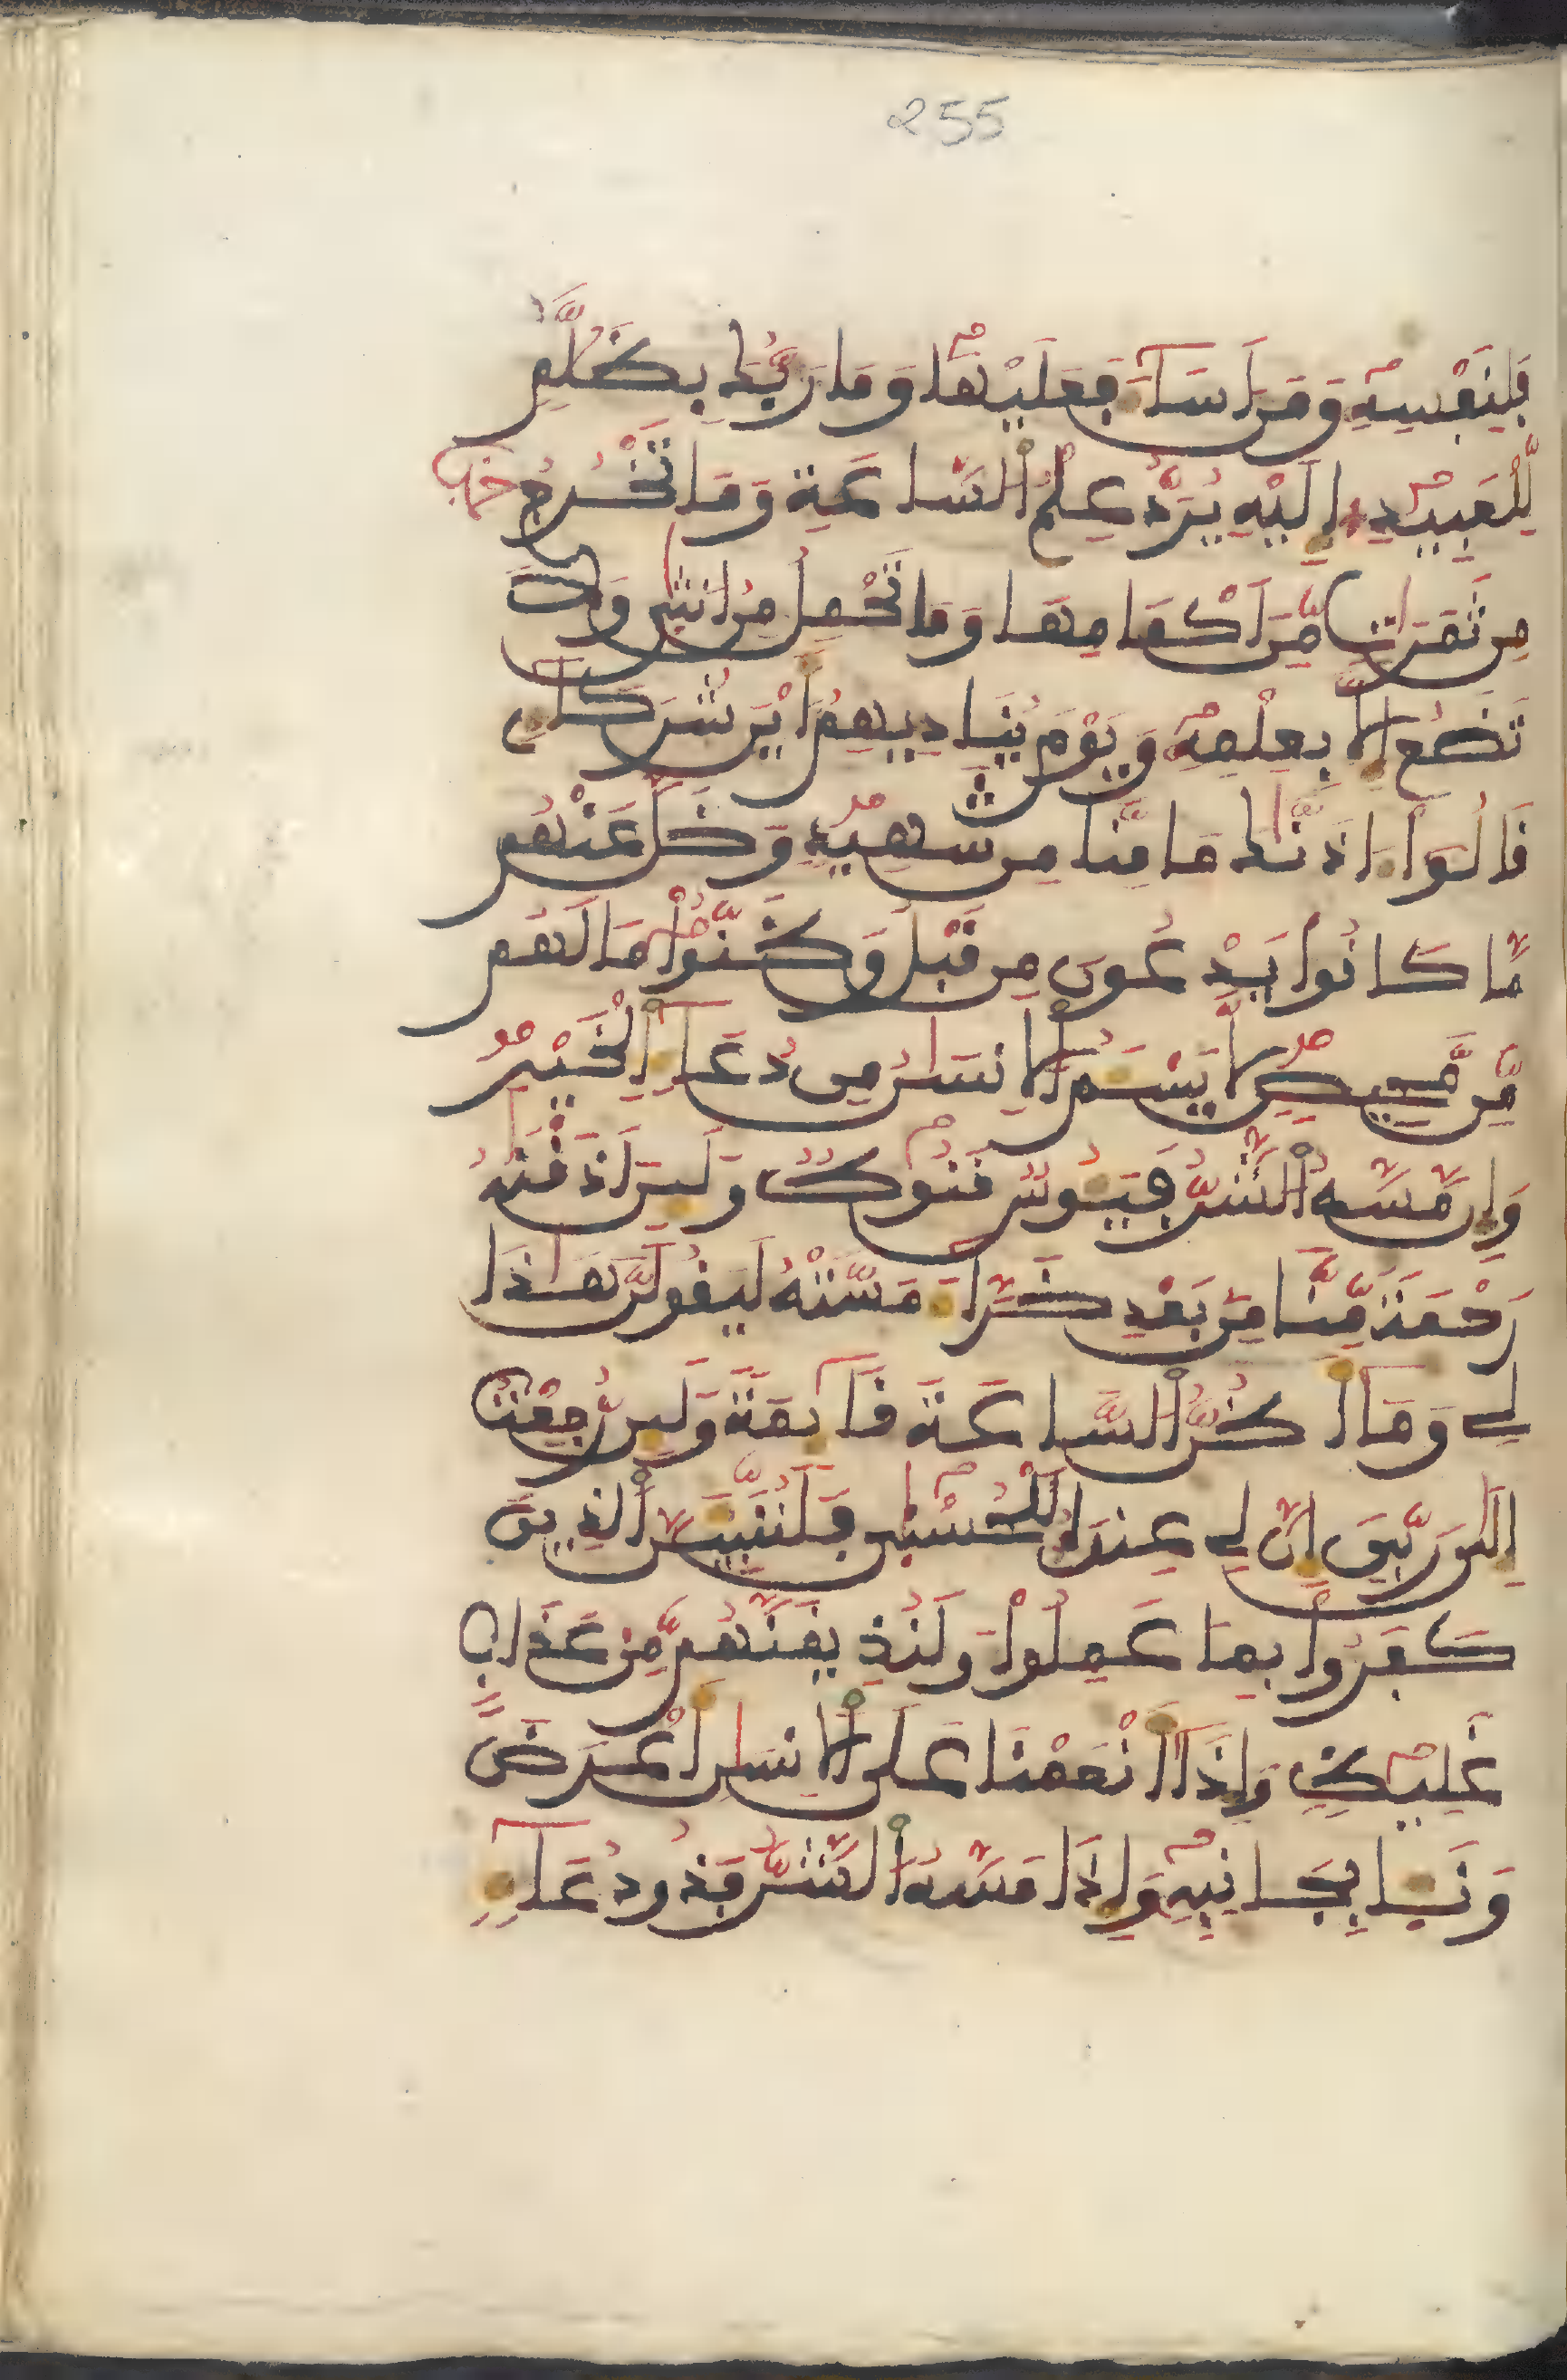 255
فَلِنَفْسِهِ وَمَنَ اَسَآءَ فَعَلَيْهَا وَمَا رَبُّكَ بِظَلَّٰمٍ
لِّلْعَبِيدِ إِلَيْهِ يُرَدُّ عِلْمُ اُلسَّاعَةِ وَمَا تَخْرُجُ
مِن ثَمَرَٰتٍ مِّنَ اَكْمَامِهَا وَمَا تَحْمِلُ مِنُ انثَىٰ وَلَا
تَضَعُ إِلَّا بِعِلْمِهِ وَيَوْمَ يُنَادِيهِمُ أَيْنَ شُرَكَآءِى
قَالُوا ءَاذَنَّٰكَ مَا مِنَّا مِن شَهِيدٍ وَضَلَّ عَنْهُم
مَّا كَانُوا يَدْعُونَ مِن قَبْلُ وَظَنُّوا مَا لَهُم
مِّن مَّحِيصٍ لَّا يَسْـَٔمُ اُلْإِنسَٰنُ مِن دُعَآءِ اِلْخَيْرِ
وَإِن مَّسَّهُ اُلشَّرُّ فَيَـُٔوسٌ قَنُوطٌ وَلَئِنَ اَذَقْنَٰهُ
رَحْمَةً مِّنَّا مِنۢ بَعْدِ ضَرَّآءَ مَسَّتْهُ لَيَقُولَنَّ هَٰذَا
لِے وَمَآ أَظُنُّ اُلسَّاعَةَ قَآئِمَةً وَلَئِن رُّجِعْتُ
إِلَىٰ رَبِّىَ إِنَّ لِے عِندَهُۥ لَلْحُسْنَىٰ فَلَنُنَبِّئَنَّ اَلذِينَ
كَفَرُوا بِمَا عَمِلُوا وَلَنُذِيقَنَّهُم مِّنْ عَذَابٍ
غَلِيظٍ وَإِذَآ أَنْعَمْنَا عَلَى اَلْإِنسَٰنِ أَعْرَضَ
وَنَـَٔا بِجَانِبِهِ وَإِذَا مَسَّهُ اُلشَّرُّ فَذُو دُعَآءٍ